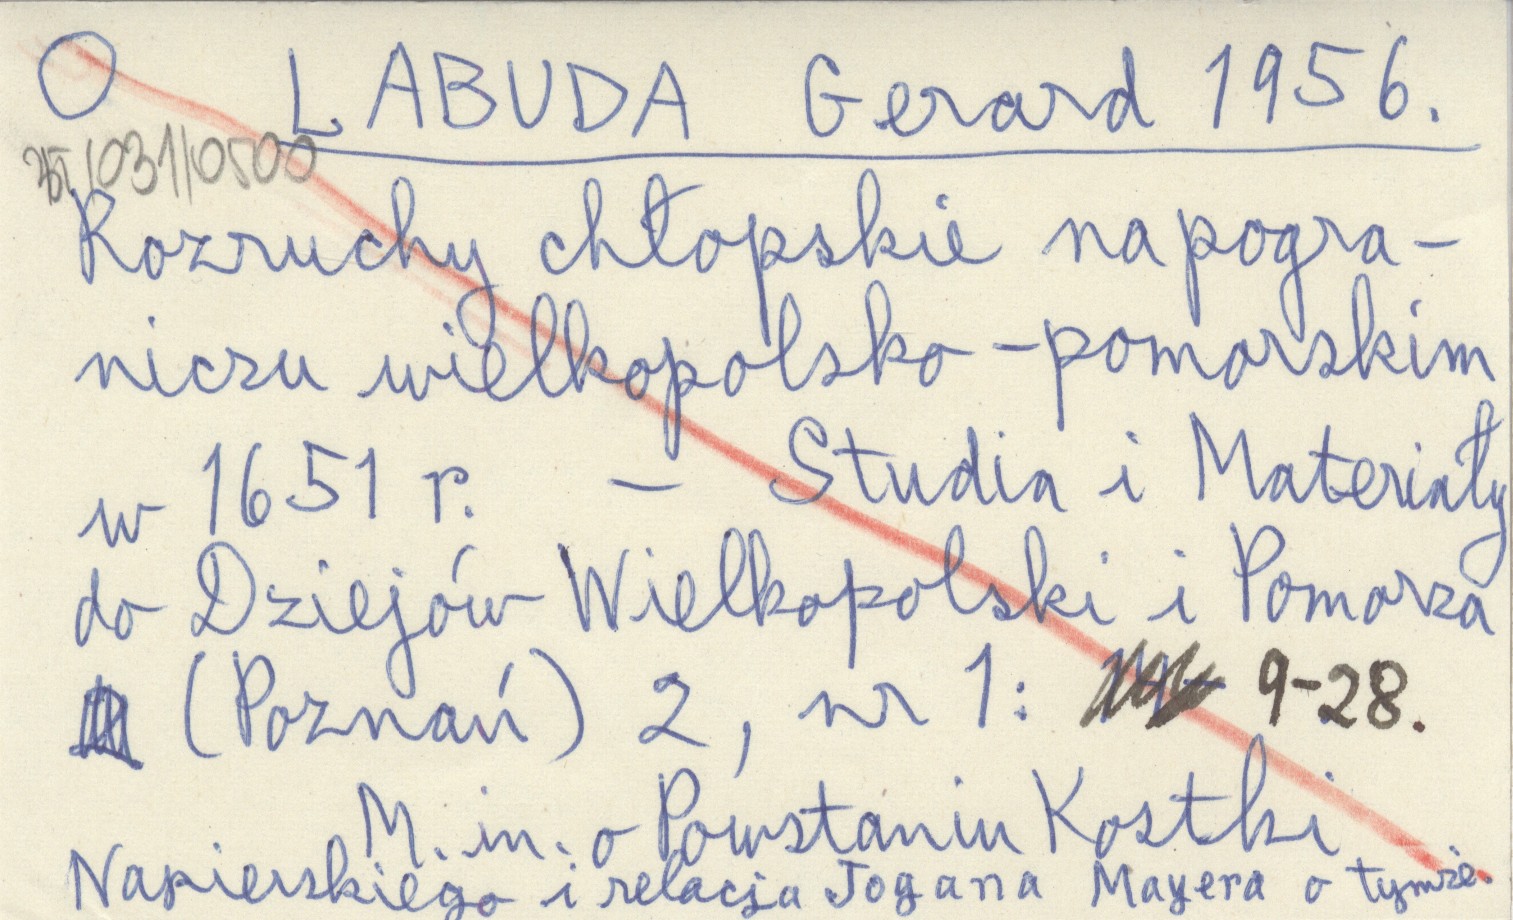 O LABUDA Gerard 1956.
/031/0500
Rozruchy chłopskie na pogra-
niczu wielkopolsko-pomorskim
w 1651 r. - Studia i Materiały
do Dziejów Wielkopolski i Pomorza
(Poznań) 2, nr 1: 9-28.
M. in. o Powstaniu Kostki
Napierskiego i relacja Jogana Mayera o tymże.